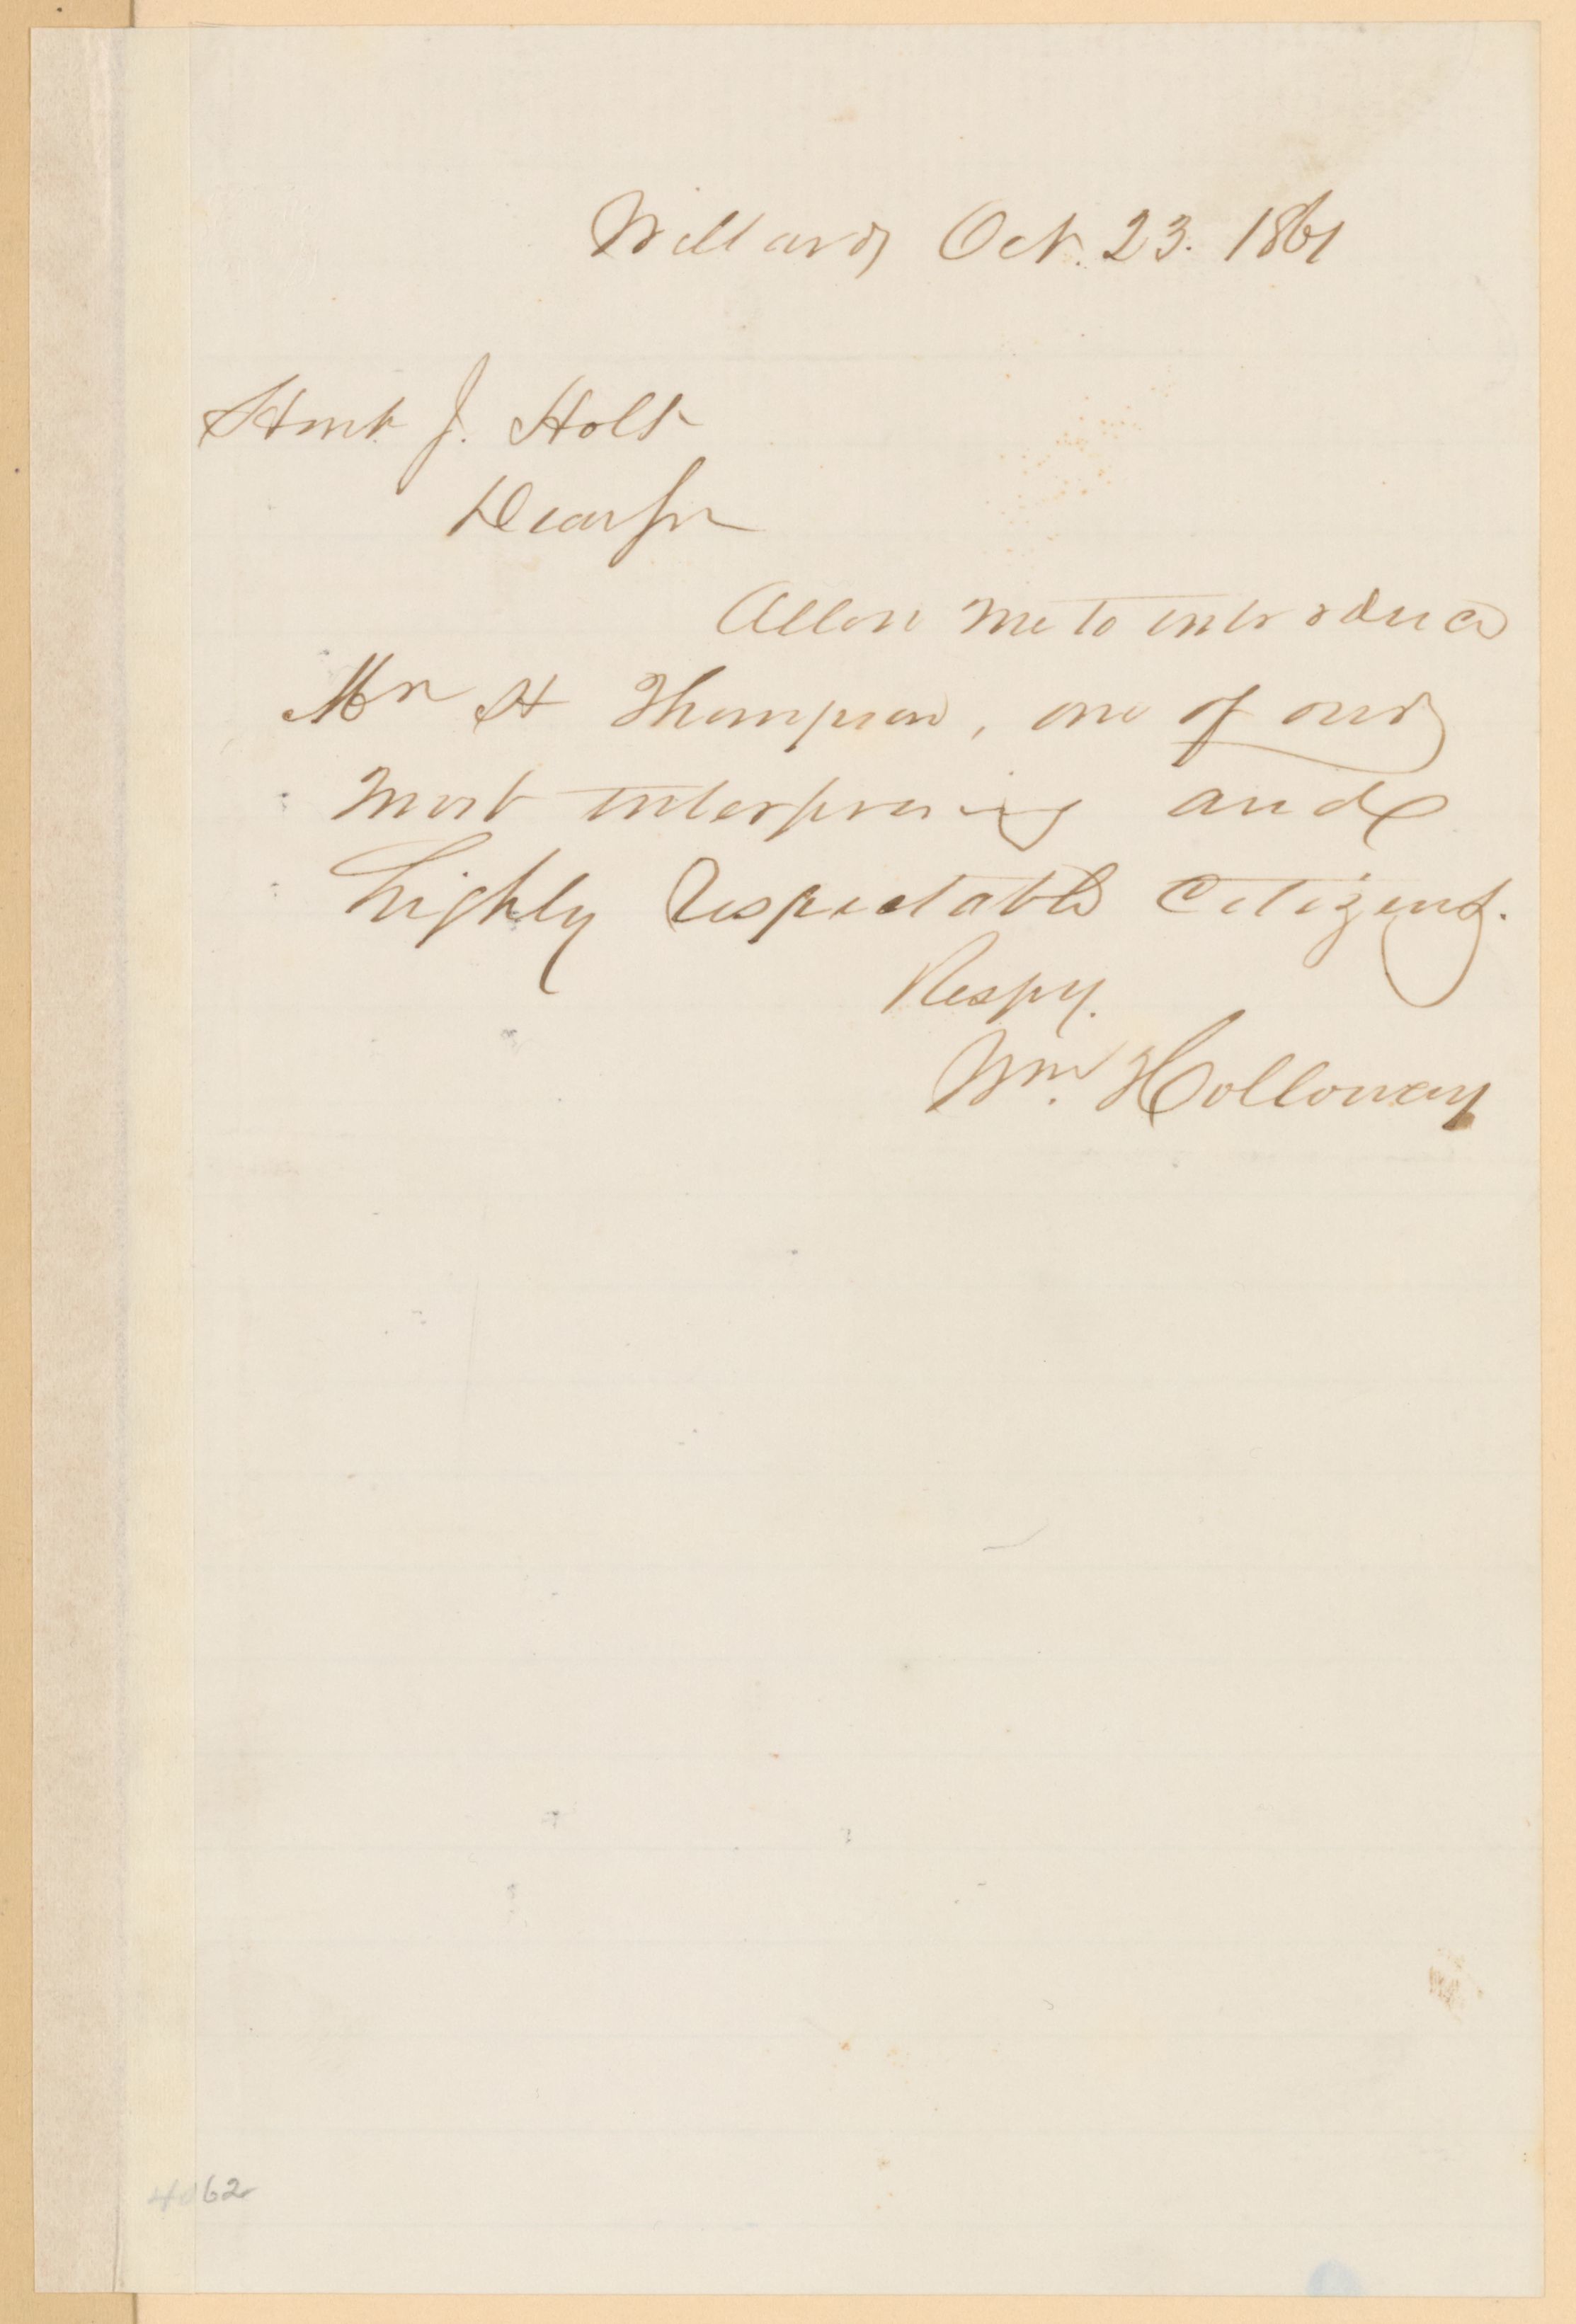 Willards Oct. 23. 1861
Honb J. Holt
Dear Sir
Allow me to introduce
Mr H Thompson, one of our
most interprising and
highly respectable Citizens.
Respy.
Wm. Holloway
4062